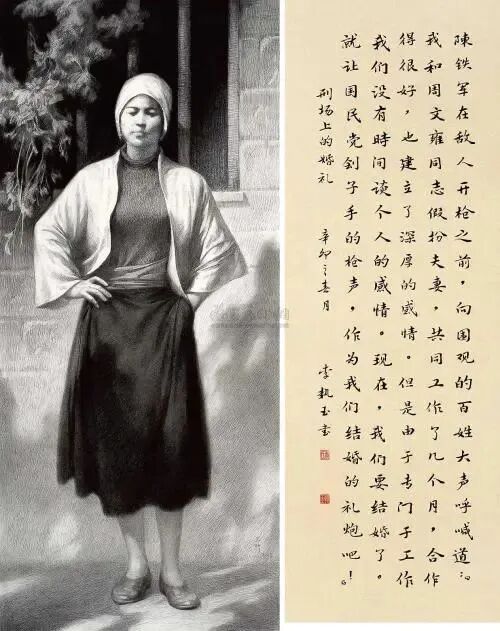 陳铁军在敌人开枪之前，向围观的百姓大声呼喊道：
我和周文雍同志假扮夫妻，共同工作了几个月，合作
得很好，也建立了深厚的感情。但是由于专门于工作
我们没有時间谈个人的感情。现在，我们要结婚了。
就让国民党刽子手的枪声，作为我们结婚的礼炮吧！
刑场上的婚礼
辛卯之春月
李執玉书